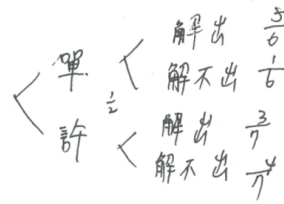 解出 5/6
單
解不出 1/6
1/2
解出 3/7
許
解不出 4/7